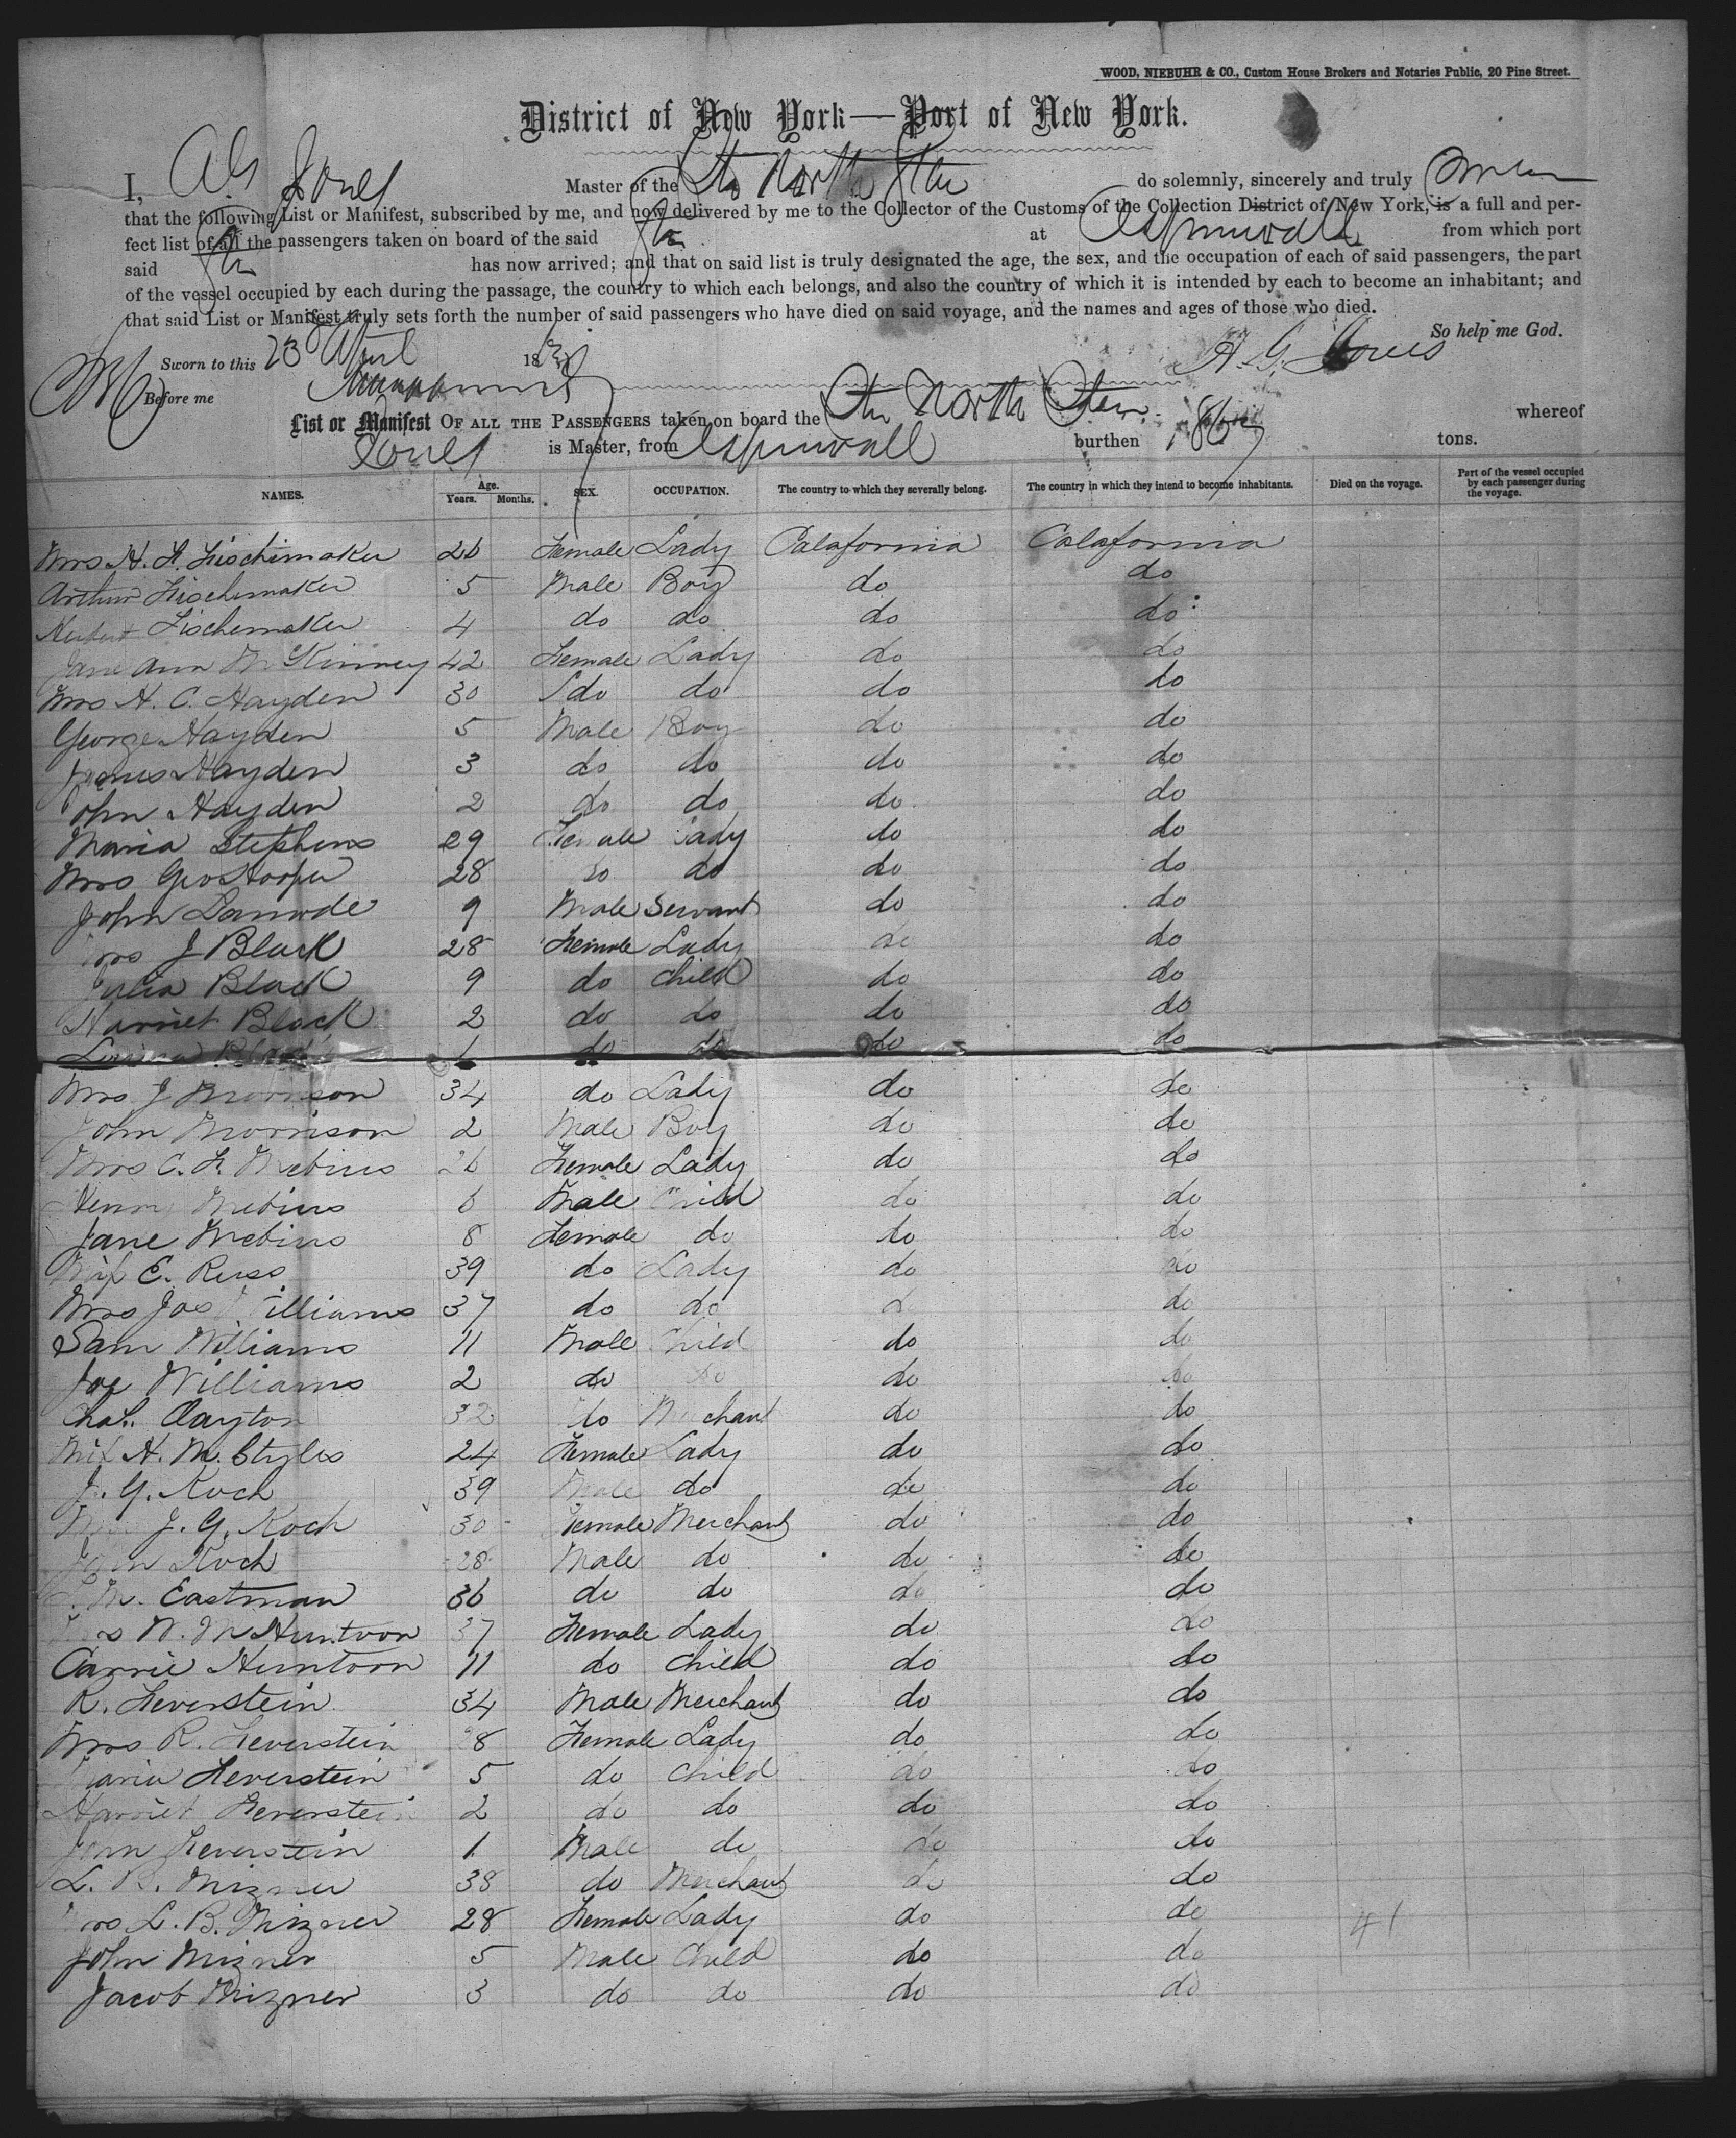 WOOD, NIEBUHR & CO., Custom House Brokers and Notaries Public, 20 Pine Street.
District of New York—Port of New York.
I, A G Jones Master of the Str North Star do solemnly, sincerely and truly swear
that the following List or Manifest, subscribed by me, and now delivered by me to the Collector of the Customs of the Collection District of New York, is a full and per-
fect list of all the passengers taken on board of the said Str at Aspinwall from which port
said Str has now arrived; and that on said list is truly designated the age, the sex, and the occupation of each of said passengers, the part
of the vessel occupied by each during the passage, the country to which each belongs, and also the country of which it is intended by each to become an inhabitant; and
that said List or Manifest truly sets forth the number of said passengers who have died on said voyage, and the names and ages of those who died.
So help me God.
Sworn to this 23 April 186 A. G. Jones
Before me
List or Manifest OF ALL THE PASSENGERS taken on board the Str North Star whereof
Jones is Master, from Aspinwall burthen 1867 tons.
NAMES. Age. Years. Months. SEX. OCCUPATION. The country to which they severally belong. The country in which they intend to become inhabitants. Died on the voyage. Part of the vessel occupied by each passenger during the voyage.
Mrs H. F. Fischemaker 26 Female Lady Calafornia Calafornia
Arthur Fischemaker 5 Male Boy do do
Herbert Fischemaker 4 do do do do
Jane Ann McKinney 42 Female Lady do do
Mrs H. C. Hayden 30 do do do do
George Hayden 5 Male Boy do do
James Hayden 3 do do do do
John Hayden 2 do do do do
Maria Stephens 29 Female Lady do do
Mrs Geo Hooper 28 do do do do
John 9 Male Servant do do
Mrs J Black 28 Female Lady do do
Julia Black 9 do Child do do
Harriet Black 2 do do do do
Black 1 do do do do
Mrs J Morrison 34 do Lady do do
John Morrison 2 Male Boy do do
Mrs C. F. Mebius 26 Female Lady do do
Henry Mebius 6 Male Child do do
Jane Mebius 8 Female do do do
Miss E. Russ 39 do Lady do do
Mrs Jas Williams 37 do do do do
Sam Williams 11 Male Child do do
Joe Williams 2 do do do do
Chas. Clayton 32 do Merchant do do
Miss H. M. Styles 24 Female Lady do do
J. G. Koch 39 Male do do do
Mrs J. G. Koch 30 Female Merchant do do
John Koch 28 Male do do do
L. M. Eastman 36 do do do do
Mrs W. M Huntoon 37 Female Lady do do
Carrie Huntoon 11 do Child do do
R. Feverstein 34 Male Merchant do do
Mrs R. Feverstein 28 Female Lady do do
Maria Feverstein 5 do Child do do
Harriet Feverstein 2 do do do do
John Feverstein 1 Male do do do
L. B. Mizner 38 do Merchant do do
Mrs L. B. Mizner 28 Female Lady do do 41
John Mizner 5 Male Child do do
Jacob Mizner 3 do do do do